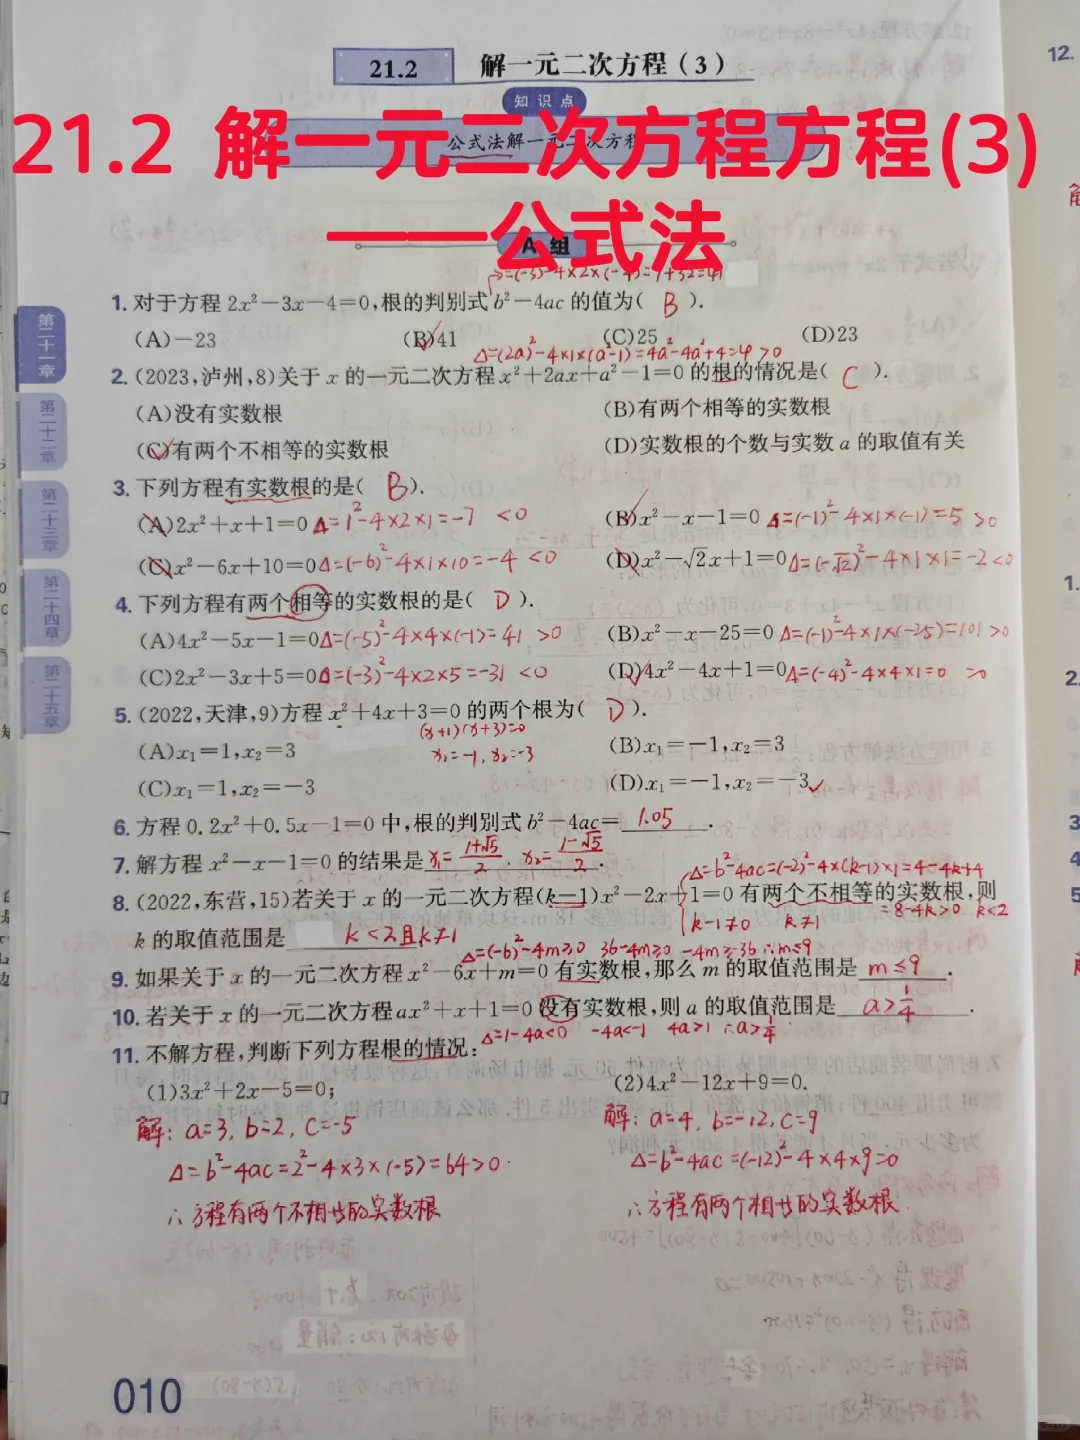 21.2 解一元二次方程(3)
知识点
公式法解一元二次方程
21.2 解一元二次方程方程(3)
——公式法
A 组
=(-3)²-4×2×(-4)=9+32=41
1. 对于方程 2x²-3x-4=0,根的判别式 b²-4ac 的值为( B ).
(A)-23 (B)41 (C)25 (D)23
Δ=(2a)²-4×1×(a²-1)=4a²-4a²+4=4>0
2. (2023,泸州,8)关于 x 的一元二次方程 x²+2ax+a²-1=0 的根的情况是( C ).
(A)没有实数根 (B)有两个相等的实数根
(C)有两个不相等的实数根 (D)实数根的个数与实数 a 的取值有关
3. 下列方程有实数根的是( B ).
(A)2x²+x+1=0 Δ=1²-4×2×1=-7 <0 (B)x²-x-1=0 Δ=(-1)²-4×1×(-1)=5 >0
(C)x²-6x+10=0 Δ=(-6)²-4×1×10=-4 <0 (D)x²-√2x+1=0 Δ=(-√2)²-4×1×1=-2<0
4. 下列方程有两个相等的实数根的是( D ).
(A)4x²-5x-1=0 Δ=(-5)²-4×4×(-1)=41 >0 (B)x²-x-25=0 Δ=(-1)²-4×1×(-25)=101>0
(C)2x²-3x+5=0 Δ=(-3)²-4×2×5=-31 <0 (D)4x²-4x+1=0 Δ=(-4)²-4×4×1=0 >0
5. (2022,天津,9)方程 x²+4x+3=0 的两个根为( D ).
(x+1)(x+3)=0
(A)x₁=1,x₂=3 x₁=-1, x₂=-3 (B)x₁=-1,x₂=3
(C)x₁=1,x₂=-3 (D)x₁=-1,x₂=-3
6. 方程 0.2x²+0.5x-1=0 中,根的判别式 b²-4ac= 1.05 .
7. 解方程 x²-x-1=0 的结果是 x₁=(1+√5)/2 , x₂=(1-√5)/2 .
Δ=b²-4ac=(-2)²-4×(k-1)×1=4-4k+4
8. (2022,东营,15)若关于 x 的一元二次方程(k-1)x²-2x+1=0 有两个不相等的实数根,则
=8-4k>0 k<2
k-1≠0 k≠1
k 的取值范围是 k<2且k≠1
Δ=(-6)²-4m≥0 36-4m≥0 -4m≥-36 ∴m≤9
9. 如果关于 x 的一元二次方程 x²-6x+m=0 有实数根,那么 m 的取值范围是 m≤9 .
10. 若关于 x 的一元二次方程 ax²+x+1=0 没有实数根,则 a 的取值范围是 a>1/4 .
Δ=1-4a<0 -4a<-1 4a>1 ∴a>1/4
11. 不解方程,判断下列方程根的情况:
(1)3x²+2x-5=0; (2)4x²-12x+9=0.
解: a=3, b=2, c=-5 解: a=4, b=-12, c=9
Δ=b²-4ac=2²-4×3×(-5)=64>0 Δ=b²-4ac=(-12)²-4×4×9=0
∴方程有两个不相等的实数根 ∴方程有两个相等的实数根
第二十一章
第二十二章
第二十三章
第二十四章
第二十五章
010
12.
1.
2.
3
4
5